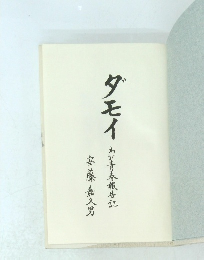 ダモイ
わが青春報告記
安藤嘉久男